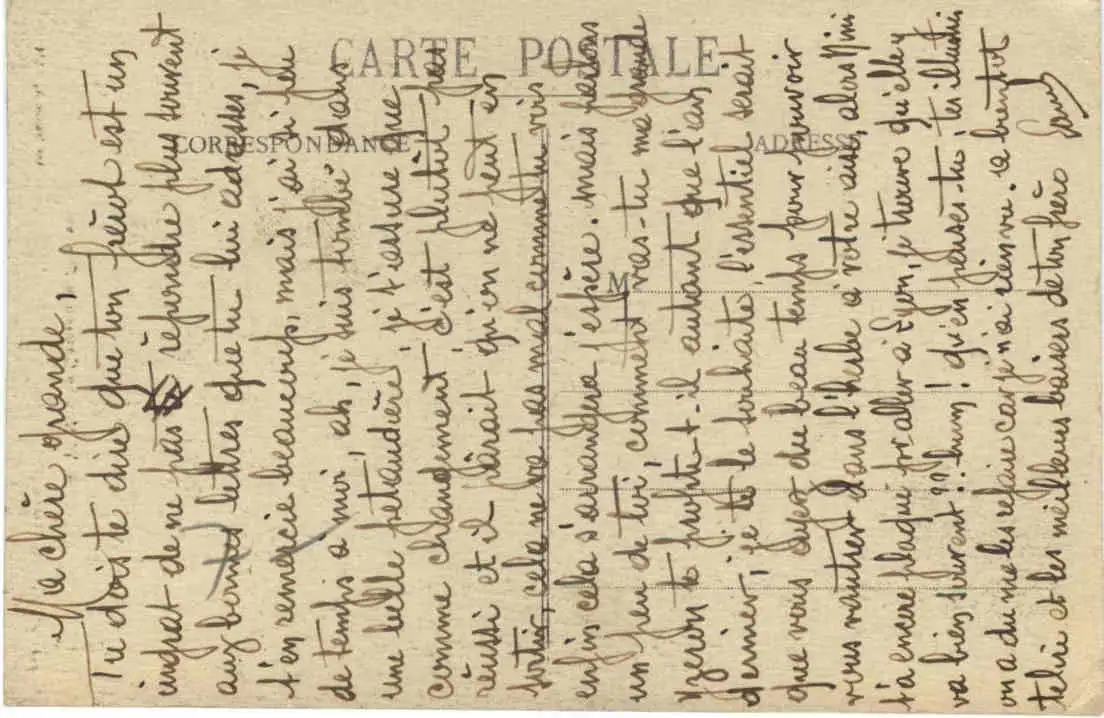 CARTE POSTALE
CORRESPONDANCE
ADRESSE
M
Ma chère grande,
Tu dois te dire que ton frérot est un
ingrat de ne pas répondre plus souvent
aux bonnes lettres que tu lui adresses, je
t'en remercie beaucoup, mais j'ai si peu
de temps a moi, ah, je suis tombé dans
une belle petaudière, je t'assure que
comme changement c'est plutôt pas
réussi et il parait qu'on ne peut en
sortir, cela ne va pas mal comme tu vois
enfin cela s'arrangera j'espère. mais parlons
un peu de toi, comment vas-tu ma grande
Yzeron te profite-t-il autant que l'an
dernier, je te le souhaite, l'essentiel serait
que vous ayez du beau temps pour pouvoir
vous vautrer dans l'herbe à votre aise, alors Mimi
t'a encore plaqué pr aller à Lyon, je trouve qu'elle y
va bien souvent ?? hum ! qu'en penses-tu, tes illustri
on a du me les refaire car je n'ai rien vu. a bientot
et les meilleurs baisers de ton frèro